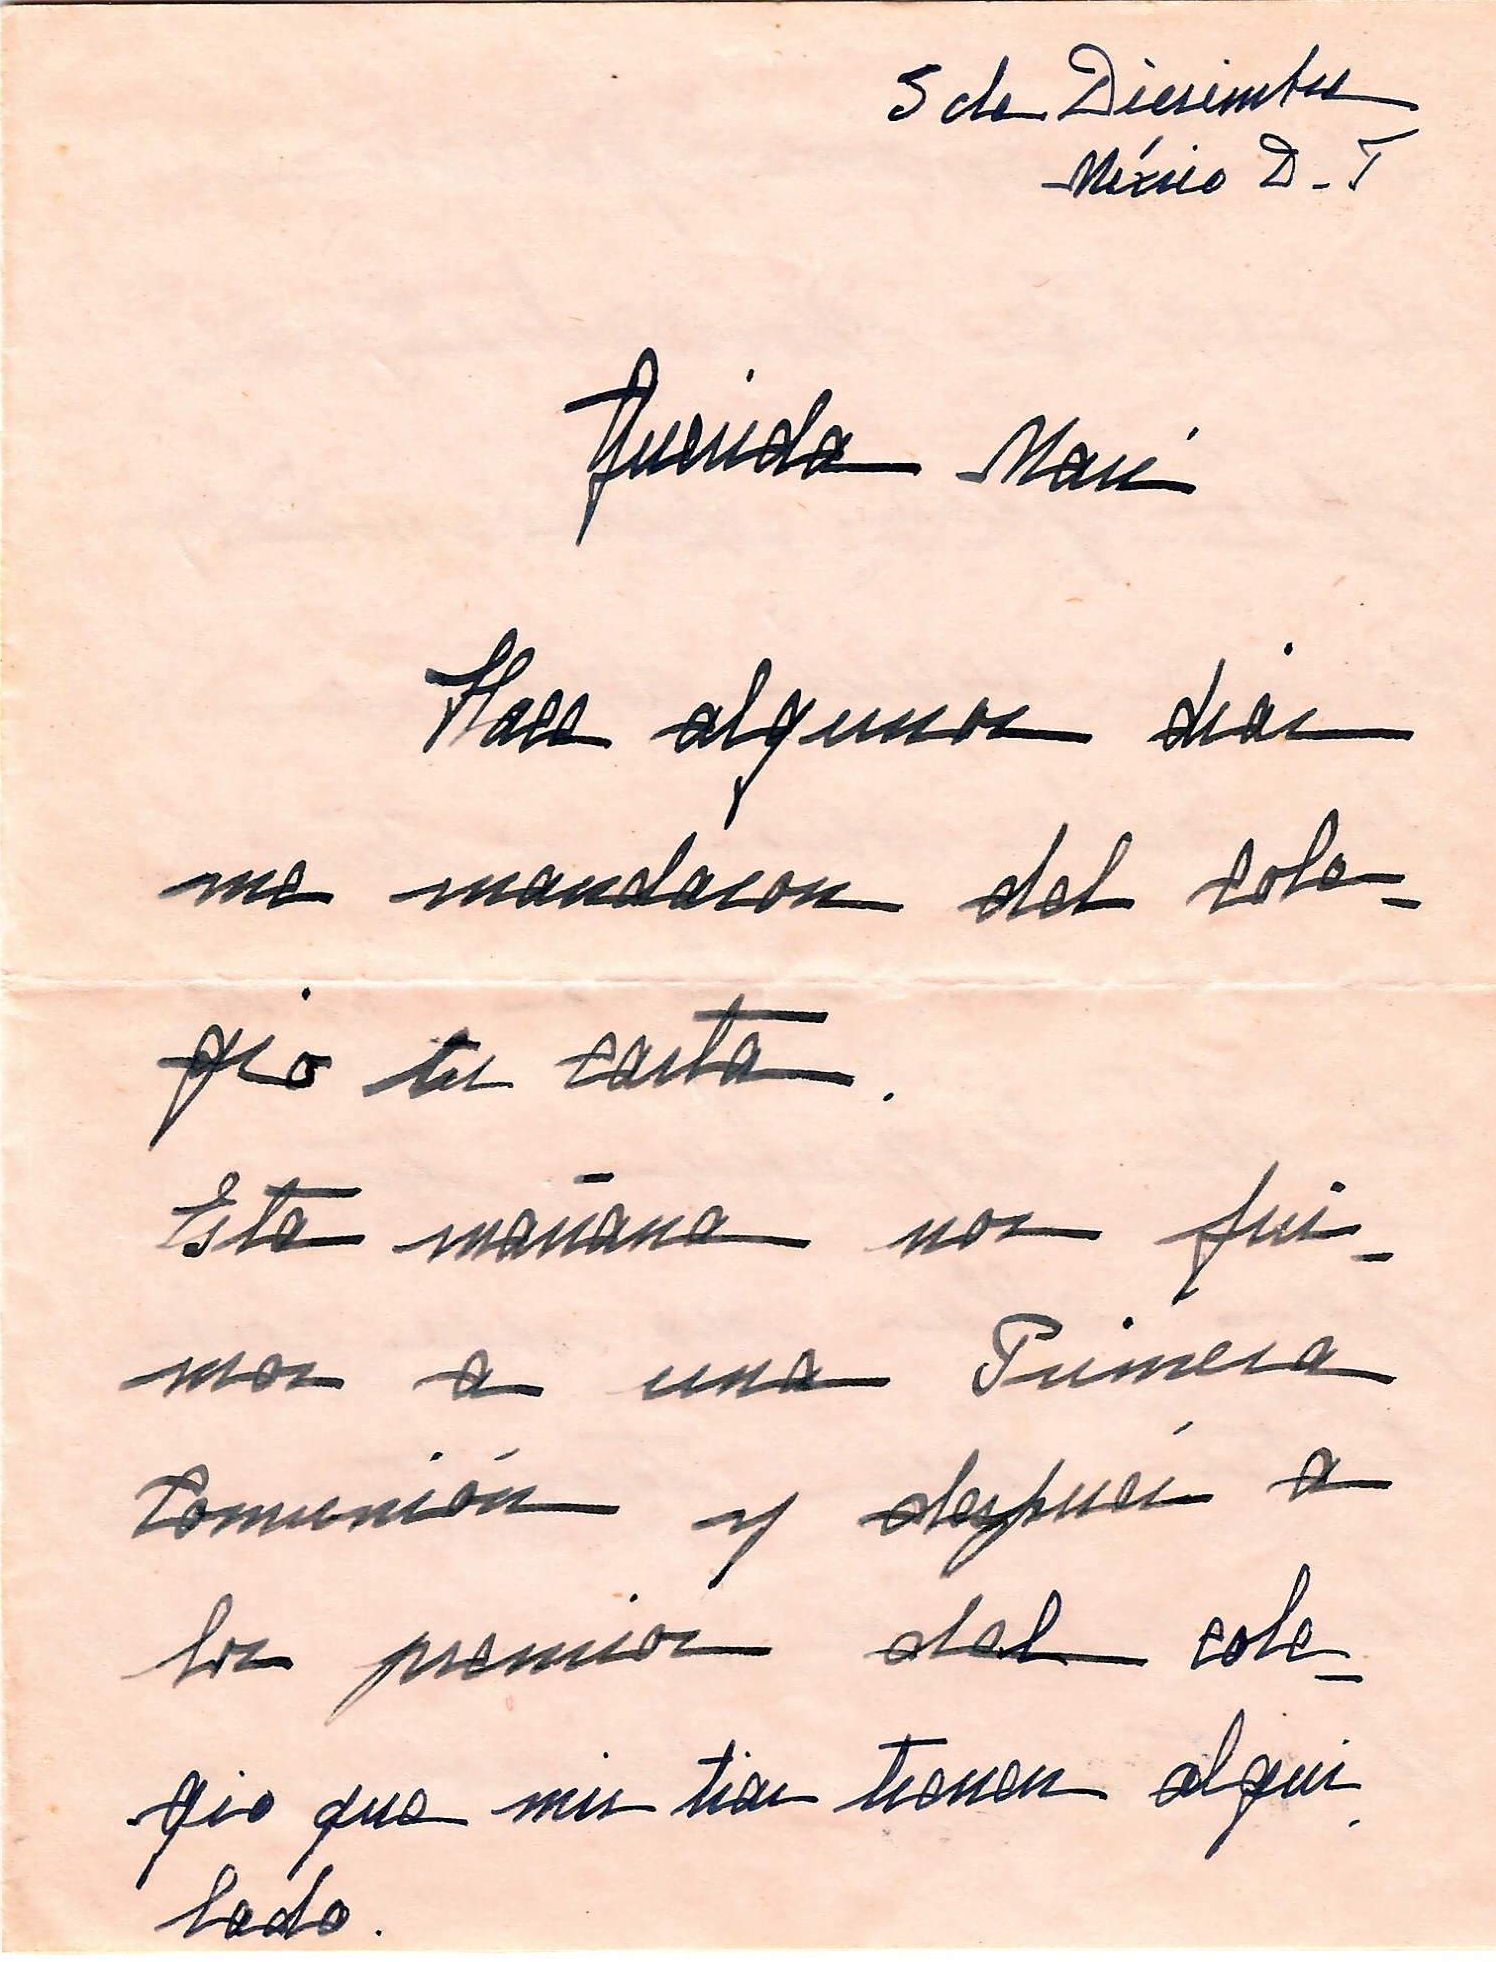 5 de Diciembre
México D. F
Querida Mari
Hace algunos dias
me mandaron del cole-
gio tu carta.
Esta mañana nos fui-
mos a una Primera
Comunión y después a
los premios del cole-
gio que mis tias tienen alqui-
lado.